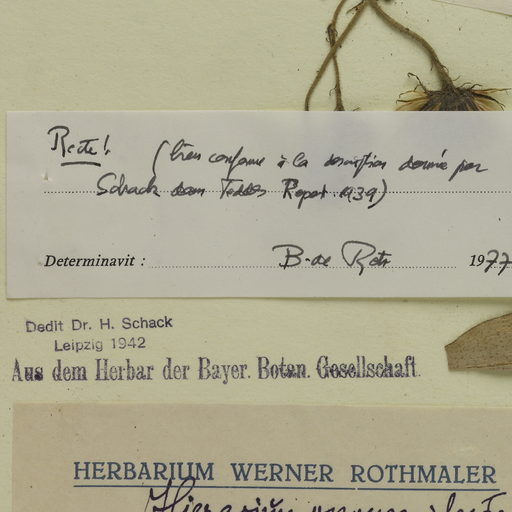 Recte!
(très conforme à la description donnée par
Schack dans Feddes Repert. 1939)
Determinavit : B. de Retz 1977
Dedit Dr. H. Schack
Leipzig 1942
Aus dem Herbar der Bayer. Botan. Gesellschaft.
HERBARIUM WERNER ROTHMALER
Hieracium